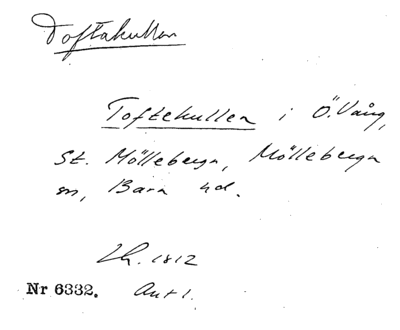 Toftakullen
Toftekullen i Ö. Vång,
St. Mölleberga, Mölleberga
sn, Bara hd.
Lh. 1812
Nr 6332. Ant 1.